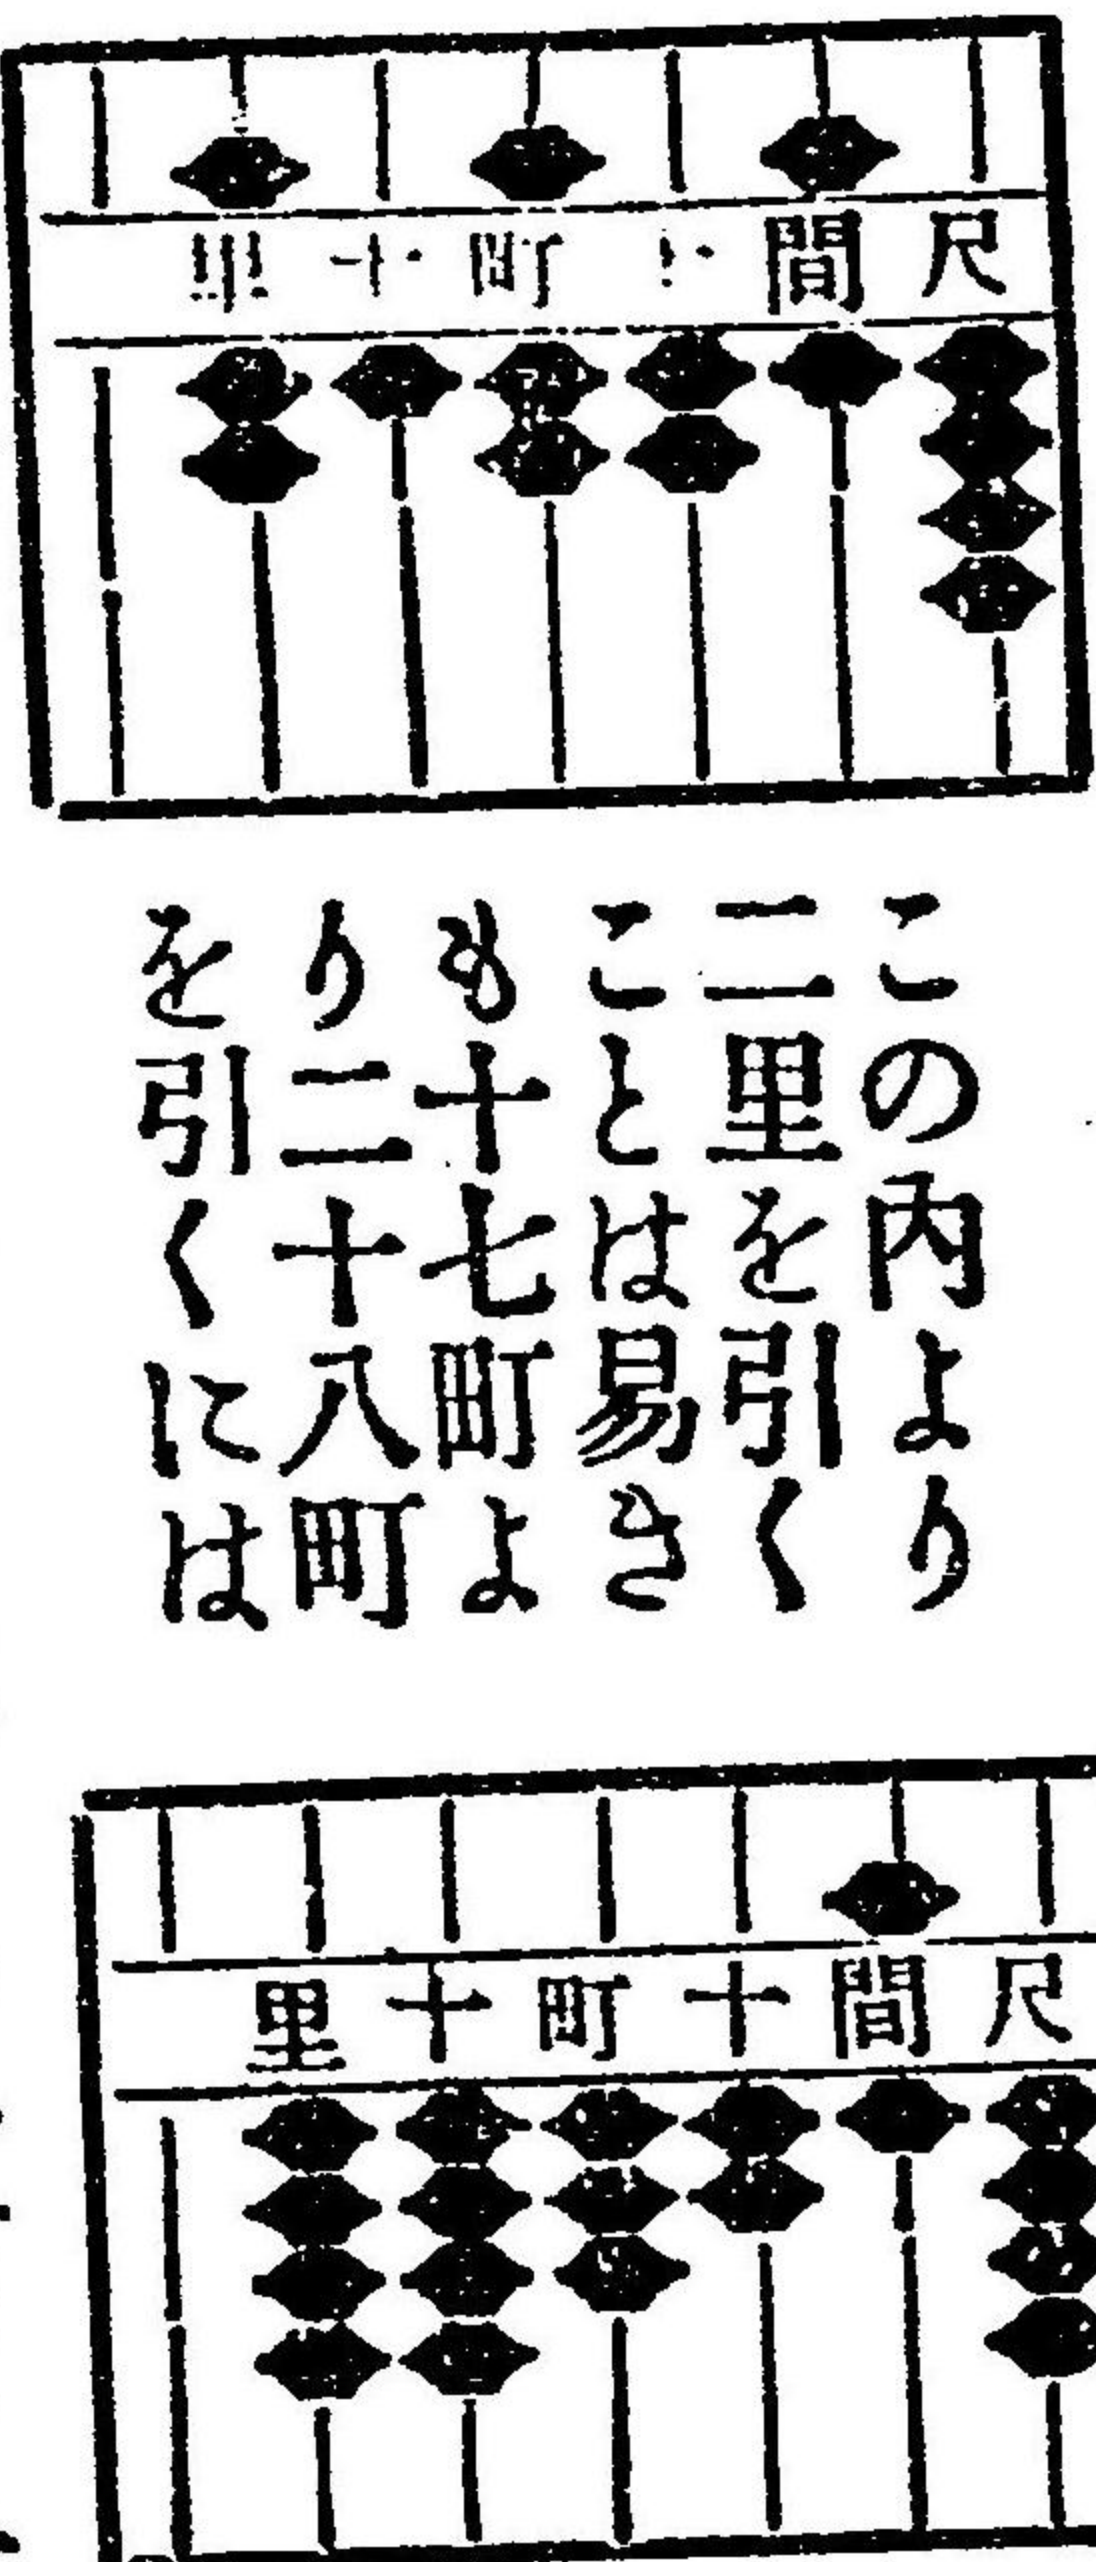 里十町十間尺
この內より
二里を引く
ことは易き
も十七町よ
り二十八町
を引くには
里十町十間尺